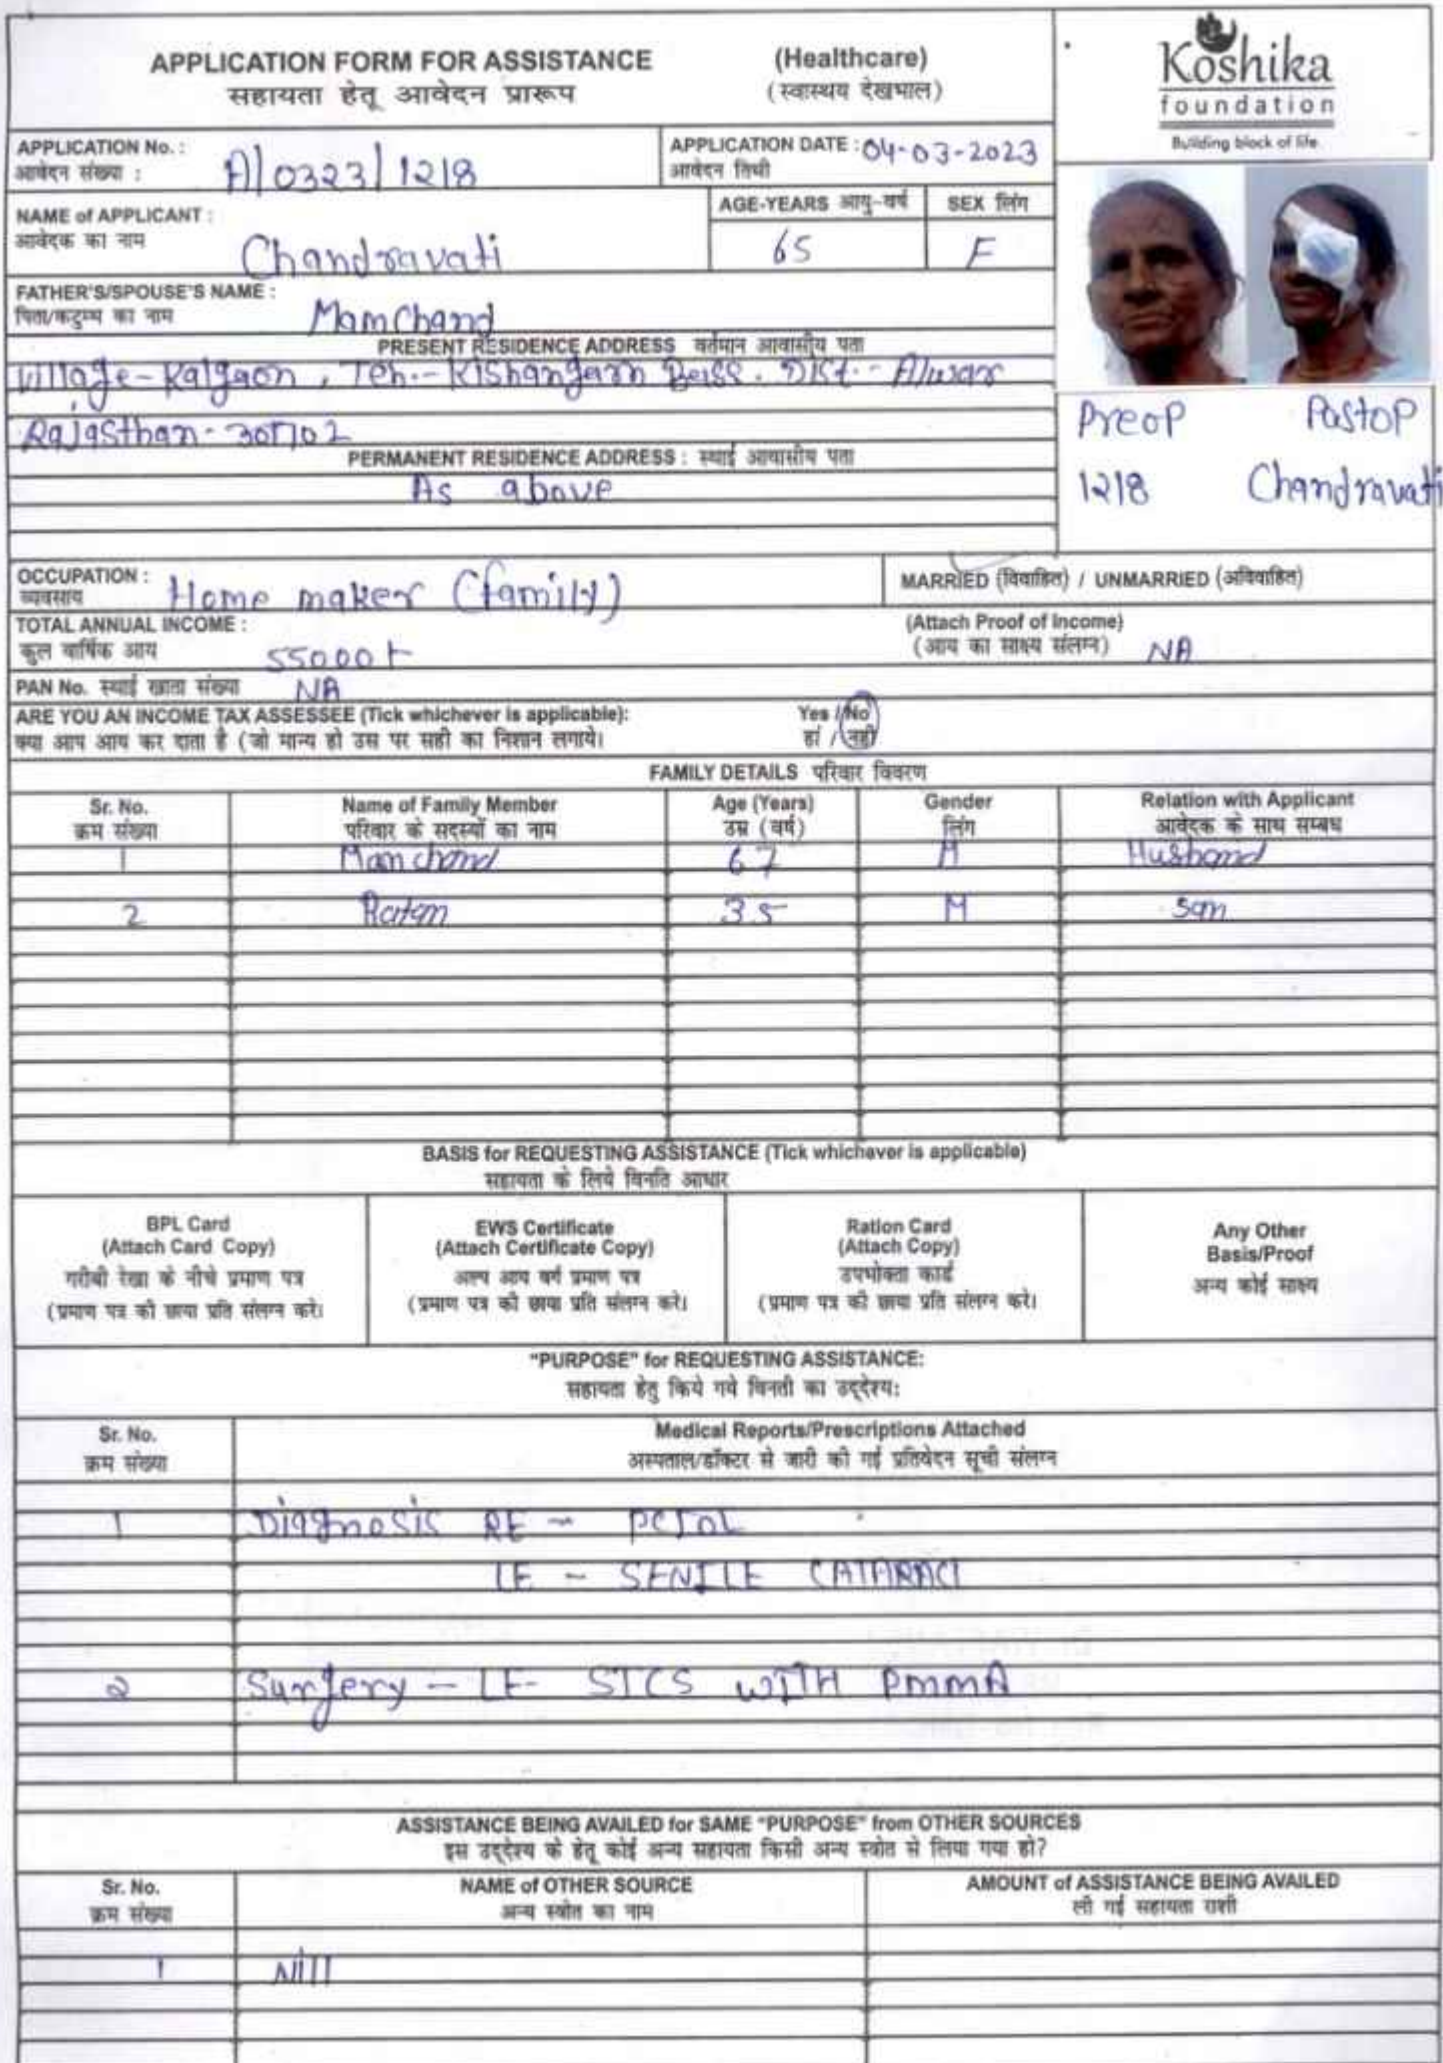 APPLICATION FORM FOR ASSISTANCE (Healthcare)
सहायता हेतू आवेदन प्रारूप (स्वास्थय देखभाल)
Koshika
foundation
Building block of life
APPLICATION No. : A/0323/1218
आवेदन संख्या :
APPLICATION DATE : 04-03-2023
आवेदन तिथी
NAME of APPLICANT :
आवेदक का नाम Chandravati
AGE-YEARS आयु-वर्ष SEX लिंग
65 F
FATHER'S/SPOUSE'S NAME :
पिता/कटुम्ब का नाम Mamchand
PRESENT RESIDENCE ADDRESS वर्तमान आवासीय पता
Village-Kalgaon, Teh.-Kishangarh Dist.-Alwar
Rajasthan-301702
PERMANENT RESIDENCE ADDRESS : स्थाई आवासीय पता
As above
Preop Postop
1218 Chandravati
OCCUPATION :
व्यवसाय Home maker (family)
MARRIED (विवाहित) / UNMARRIED (अविवाहित)
TOTAL ANNUAL INCOME :
कुल वार्षिक आय 55000
(Attach Proof of Income)
(आय का साक्ष्य संलग्न) NA
PAN No. स्थाई खाता संख्या NA
ARE YOU AN INCOME TAX ASSESSEE (Tick whichever is applicable): Yes / No
क्या आप आय कर दाता है (जो मान्य हो उस पर सही का निशान लगाये। हां / नही
FAMILY DETAILS परिवार विवरण
Sr. No. Name of Family Member Age (Years) Gender Relation with Applicant
क्रम संख्या परिवार के सदस्यों का नाम उम्र (वर्ष) लिंग आवेदक के साथ सम्बध
1 Mamchand 67 M Husband
2 Ratan 35 M Son
BASIS for REQUESTING ASSISTANCE (Tick whichever is applicable)
सहायता के लिये विनति आधार
BPL Card
(Attach Card Copy)
गरीबी रेखा के नीचे प्रमाण पत्र
(प्रमाण पत्र की छाया प्रति संलग्न करे।
EWS Certificate
(Attach Certificate Copy)
अल्प आय वर्ग प्रमाण पत्र
(प्रमाण पत्र की छाया प्रति संलग्न करे।
Ration Card
(Attach Copy)
उपभोक्ता कार्ड
(प्रमाण पत्र की छाया प्रति संलग्न करे।
Any Other
Basis/Proof
अन्य कोई साक्ष्य
"PURPOSE" for REQUESTING ASSISTANCE:
सहायता हेतु किये गये विनती का उद्देश्य:
Sr. No. Medical Reports/Prescriptions Attached
क्रम संख्या अस्पताल/डॉक्टर से जारी की गई प्रतिवेदन सूची संलग्न
1 Diagnosis RE - PCIOL
LE - SENILE CATARACT
2 Surgery - LE- SICS WITH PMMA
ASSISTANCE BEING AVAILED for SAME "PURPOSE" from OTHER SOURCES
इस उद्देश्य के हेतू कोई अन्य सहायता किसी अन्य स्त्रोत से लिया गया हो?
Sr. No. NAME of OTHER SOURCE AMOUNT of ASSISTANCE BEING AVAILED
क्रम संख्या अन्य स्त्रोत का नाम ली गई सहायता राशी
1 Nill